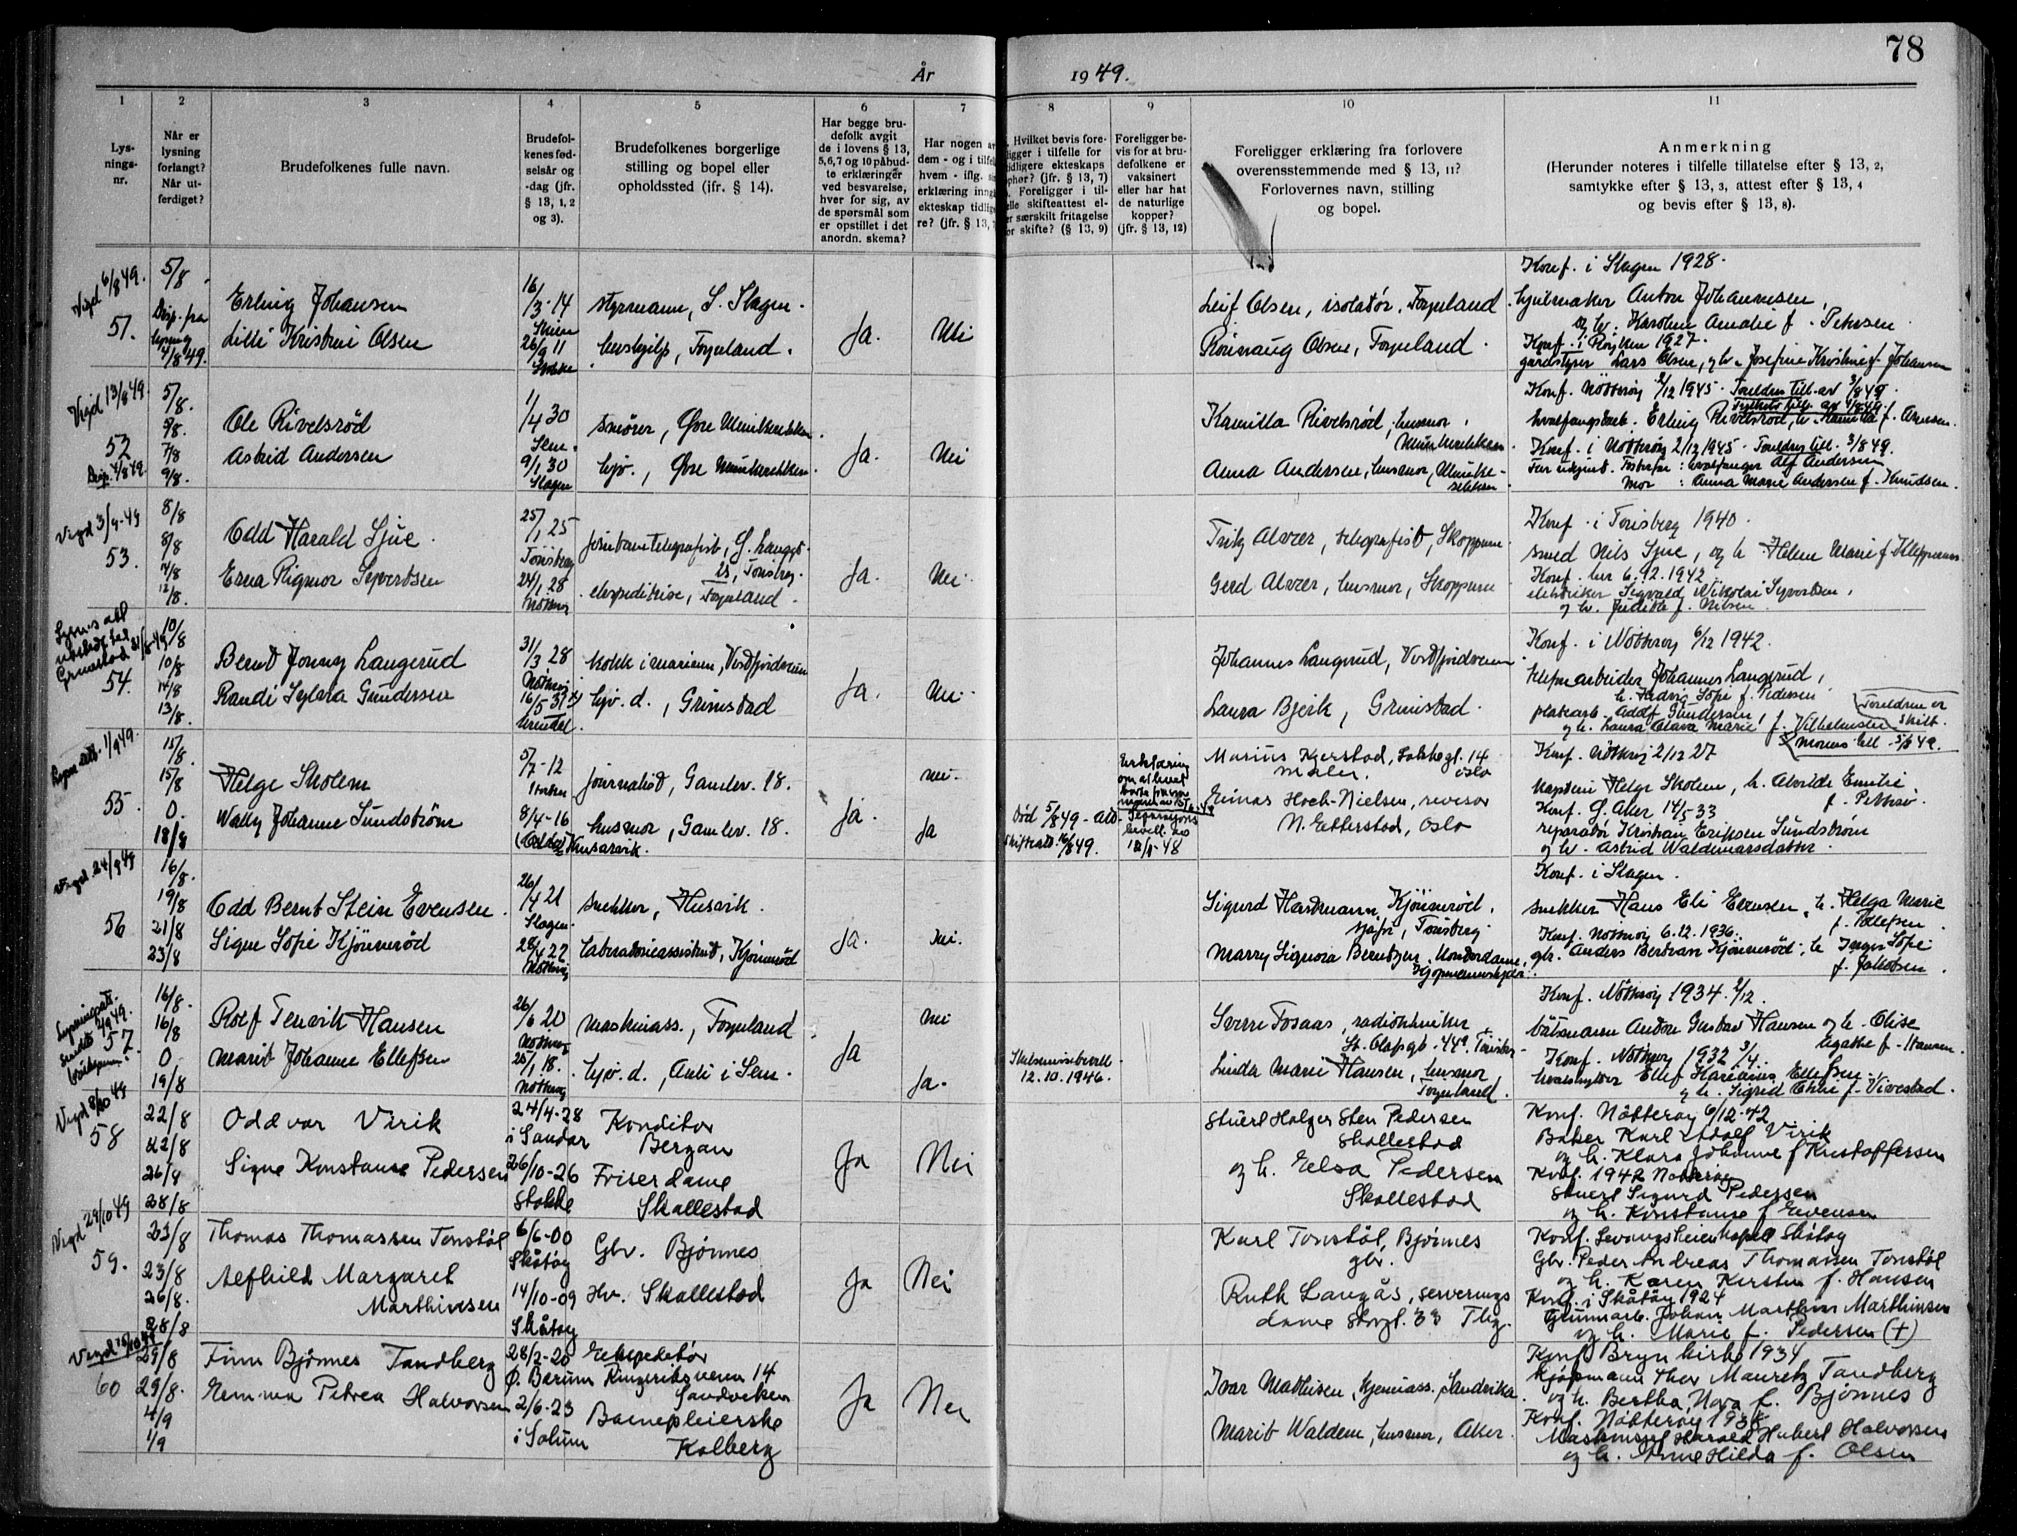 78
År 1949.
1
Lys-
nings-
nr.
2
Når er
lysning
forlangt?
Når ut-
ferdiget?
3
Brudefolkenes fulle navn.
4
Brudefol-
kenes fød-
selsår og
-dag (jfr.
§ 13, 1, 2
og 3).
5
Brudefolkenes borgerlige
stilling og bopel eller
opholdssted (jfr. § 14).
6
Har begge bru-
defolk avgit
de i lovens § 13,
5,6,7 og 10 påbud-
te erklæringer
ved besvarelse,
hver for sig, av
de spørsmål som
er opstillet i det
anordn. skema?
7
Har nogen
dem - og i tilfel
hvem - iflg.
erklæring inng
ekteskap tidlig
re? (jfr. § 13,
8
Hvilket bevis fore-
ligger i tilfelle for
tidligere ekteskaps
ophør? (jfr. § 13, 7)
Foreligger i til-
felle skifteattest el-
er særskilt fritagelse
or skifte? (§ 13, 9)
9
Foreligger be-
vis for at bru-
defolkene er
vaksinert
eller har hat
de naturlige
kopper?
(jfr. § 13, 12)
10
Foreligger erklæring fra forlovere
overensstemmende med § 13, 11?
Forlovernes navn, stilling
og bopel.
11
Anmerkning
(Herunder noteres i tilfelle tillatelse efter § 13, 2,
samtykke efter § 13, 3, attest efter § 13, 4
og bevis efter § 13, 8).
Vigd 6/8 49.
51.
5/8
Disp. fra
lysning
4/8 49.
Erling Johansen
Lilli Kristine Olsen
16/3-14
Skien
26/9 11
Stokke
styrmann, S. Slagen.
hushjelp, Føynland.
Ja.
Nei
Leif Olsen, isolatør, Føynland.
Rønnaug Olsen, Føynland.
Konf. i Slagen 1928.
hjulmaker Anton Johannesen,
og h. Karoline Amalie f. Petersen
Konf. i Røyken 1927.
gårdstyrer Lars Olsen, og h. Josefine Kristine f. Johansen
Vigd 13/8 49.
52
Disp. 4/8 49.
5/8.
5/8.
7/8
9/8.
Ole Rivelsrød
Astrid Andersen
1/4 30
Sem.
9/1 30
Slagen
smører, Øvre Munkerekken.
hjv., Øvre Munkerekken.
Ja.
Nei
Kamilla Rivelsrød, husmor,
Munkerekken.
Anna Andersen, husmor, Munke-
rekken.
Konf. Nøtterøy 2/12 1945. Foreldres till. av 3/8 49.
Fylkets till. av 4/8 49.
hvalfangstarb. Erling Rivelsrød, h. Kamilla f. Arnesen.
Konf. i Nøtterøy 2/12 1945. Foreldres till. 3/8 49.
Far udgivet. Fosterfar: hvalfanger Alf Andersen
Mor: Anna Marie Andersen f. Knudsen.
Vigd 3/9-49
53.
8/8
8/8
14/8
12/8.
Odd Harald Sjue.
Erna Rigmor Syvertsen
25/1 25
Tønsberg
24/1 28
Nøtterøy
jernbanetelegrafist, G. Langgt.
25, Tønsberg.
ekspeditrise, Føynland.
Ja.
Nei.
Fritz Alvær, telegrafist, Skoppum
Gerd Alvær, husmor, Skoppum
Konf. i Tønsberg 1940.
smed Nils Sjue, og h. Helene Marie f.
Konf. her 6.12.1942
elektriker Sigvald Nikolai Syvertsen,
og h. Judithe f. Nilsen.
Lysn.s att
utstedt til
Grimstad 21/8-49
54.
10/8
10/8
14/8
13/8.
Bernt Jonny Langerud
Randi Sylvia Gundersen
31/3 28
Nøtterøy
16/5 31
Arendal.
kokk i marinen, Vestfjordveien
hjv. d., Grimstad
Ja.
Nei.
Johannes Langerud, Vestfjordveien
Laura Bjerk, Grimstad.
Konf. i Nøtterøy 6/12 1942.
telefonarbeider Johannes Langerud,
h. Hedvig Sofie f. Pedersen
platearb. Adolf Gundersen,
og h. Laura Olava Marie f. Vilhelmsen
Foreldrene er
skilt.
Morens till. 5/8 49.
Lysn. att. 1/9 49.
55.
15/8.
15/8
0.
18/8
Helge Skolem
Wally Johanne Sundstrøm
5/7-12
8/4-16
journalist, Gamlev. 18.
husmor, Gamlev. 18.
Ja.
Nei.
Ja
Død 5/8 49 - Ald.
Skifteatt. 16/8 49.
Erklæring
Separasjons
bevill.
12/1-48
Marius Kjerstad, Bakkegt. 14
maler, Oslo
Einar Hoch-Nielsen, revisor
N. Etterstad, Oslo
Konf. Nøtterøy 2/12 27
kaptein Helge Skolem, h. Alvilde Emilie
f. Pettersø.
Konf. G. Aker 14/5-33
reparatør Kristian Eriksen Sundstrøm
og h. Astrid Waldemarsdatter.
Vigd 24/9 49
56
16/8.
19/8
21/8
23/8
Odd Bernt Stein Evensen.
Signe Sofie Kjønnerød
26/4 21
Slagen.
28/4 22
Nøtterøy
snekker, Husvik.
Laboratorieassistent, Kjønnerød
Ja.
Nei.
Sigurd Hartmann Kjønnerød,
sjåfør, Tønsberg.
Marry Signora Berntzen, kontordame,
Kjøpmannskjær.
Konf. i Slagen.
snekker Hans Eli Evensen, h. Helga Marie
f. Tollefsen
Konf. Nøtterøy 6.12.1936.
gbr. Anders Bertran Kjønnerød, h. Inger Sofie
f. Jakobsen.
Lysningsatt.
57
16/8.
16/8
0
19/8
Rolf Tenvik Hansen
Marit Johanne Ellefsen
26/6 20
Nøtterøy
25/1 18.
Nøtterøy
maskinass., Føynland
hjv. d., Auli i Sem.
Ja
Nei
Ja.
Skilsmissebevill.
12.10.1946.
Sverre Fosaas, radiotekniker
St. Olafsgt. 44a, Tønsberg.
Linda Marie Hansen, husmor
Føynland.
Konf. Nøtterøy 1934. 2/12.
båtsmann Anton Gustav Hansen og h. Olise
Agathe f. Hansen.
Konf. Nøtterøy 1932 3/4.
hvalskytter Ellef Karenius Ellefsen
og h. Sigrid Othie f. Vivestad.
Vigd 8/10 49
58
22/8
22/8
26/8
28/8
Oddvar Virik
Signe Konstanse Pedersen
24/4-28
i Sandar
26/10-26
Stokke
Konditor
Bergan
Friserdame
Skallestad
Ja
Nei
Stuert Holger Sten Pedersen
Skallestad
og h. Elsa Pedersen
Skallestad
Konf. Nøtterøy 6/12-42
Baker Karl Adolf Virik
og h. Klara Johanne f Kristoffersen
Konf. 1942 Nøtterøy
Stuert Sigurd Pedersen
og h. Konstanse f Evensen
Vigd 29/10 49
59.
23/8
23/8
26/8.
28/8
Thomas Thomassen Tonstøl
Alfhild Margaret
Marthinsen
6/6-00
Skåtøy
14/10-09
Skåtøy
Gbr. Bjønnes
Hv. Skallestad
Ja
Nei
Karl Tonstøl, Bjønnes
gbr.
Ruth Langås, serverings
dame Storgt. 33 Tbg.
Konf. Levangsheien kapell Skåtøy
Gbr. Peder Andreas Thomassen Tonstøl
og h. Karen Kirsten f. Hansen
Konf. i Skåtøy 1924
Grunnarb. Johan Marthin Marthinsen
og h. Marie f. Pedersen (+)
Vigd 15/10 49
60
29/8
29/8.
4/9
1/9
Finn Bjønnes Tandberg
Emma Petrea Halvorsen
28/2-20
Ø. Bærum
2/6-23
i Solum
Ekspeditør
Ringeriksveien 14
Sandviken
Barnepleierske
Kolberg
Ja
Nei
Ivar Mathisen, kjemiass., Sandvika.
Marit Waldem, husmor, Aker.
Konf. Bryn kirke 1934
Kjøpmann Thor Mauritz Tandberg
og h. Bertha Nora f. Bjønnes
Konf. Nøtterøy 1938
Maskinsjef Harald Hubert Halvorsen
og h. Anne Hilda f. Olsen